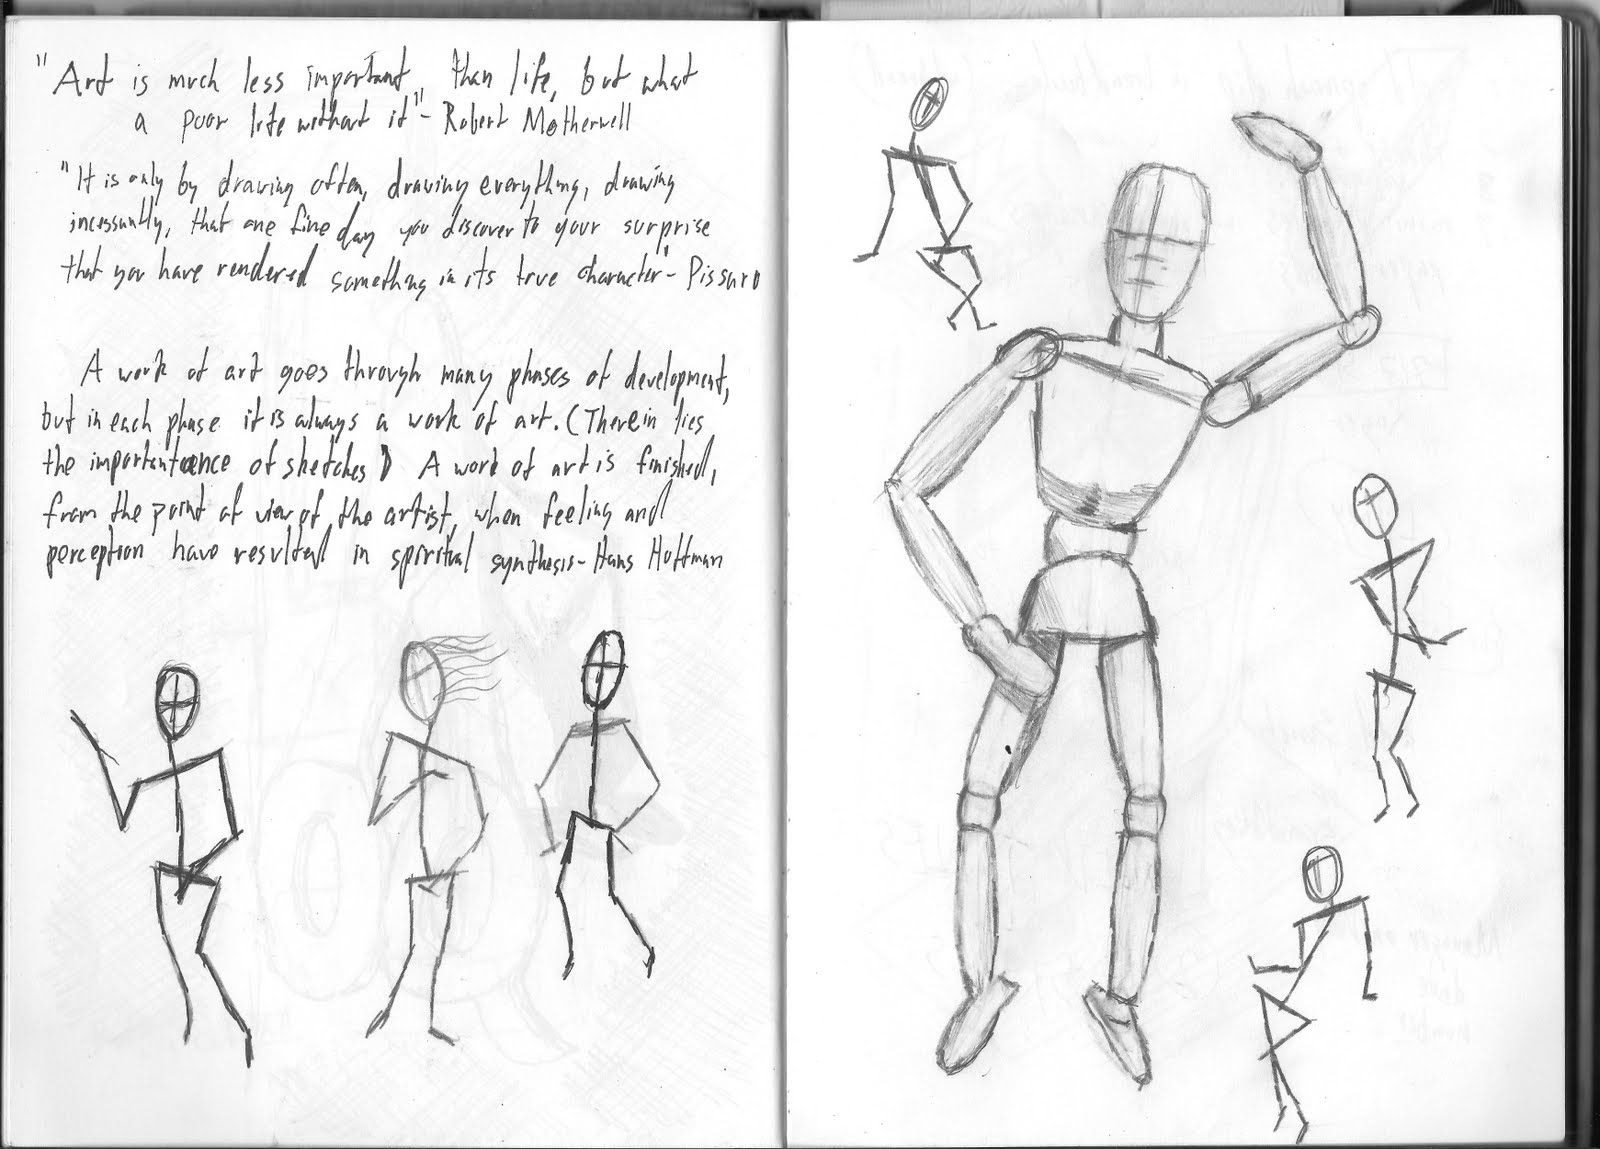 "Art is much less important than life, but what
a poor life without it" - Robert Motherwell
"It is only by drawing often, drawing everything, drawing
incessantly, that one fine day you discover to your surprise
that you have rendered something in its true character" - Pissaro
A work of art goes through many phases of development,
but in each phase it is always a work of art. (Therein lies
the importantance of sketches) A work of art is finished,
from the point of view of the artist, when feeling and
perception have resulted in spiritual synthesis - Hans Hoffman